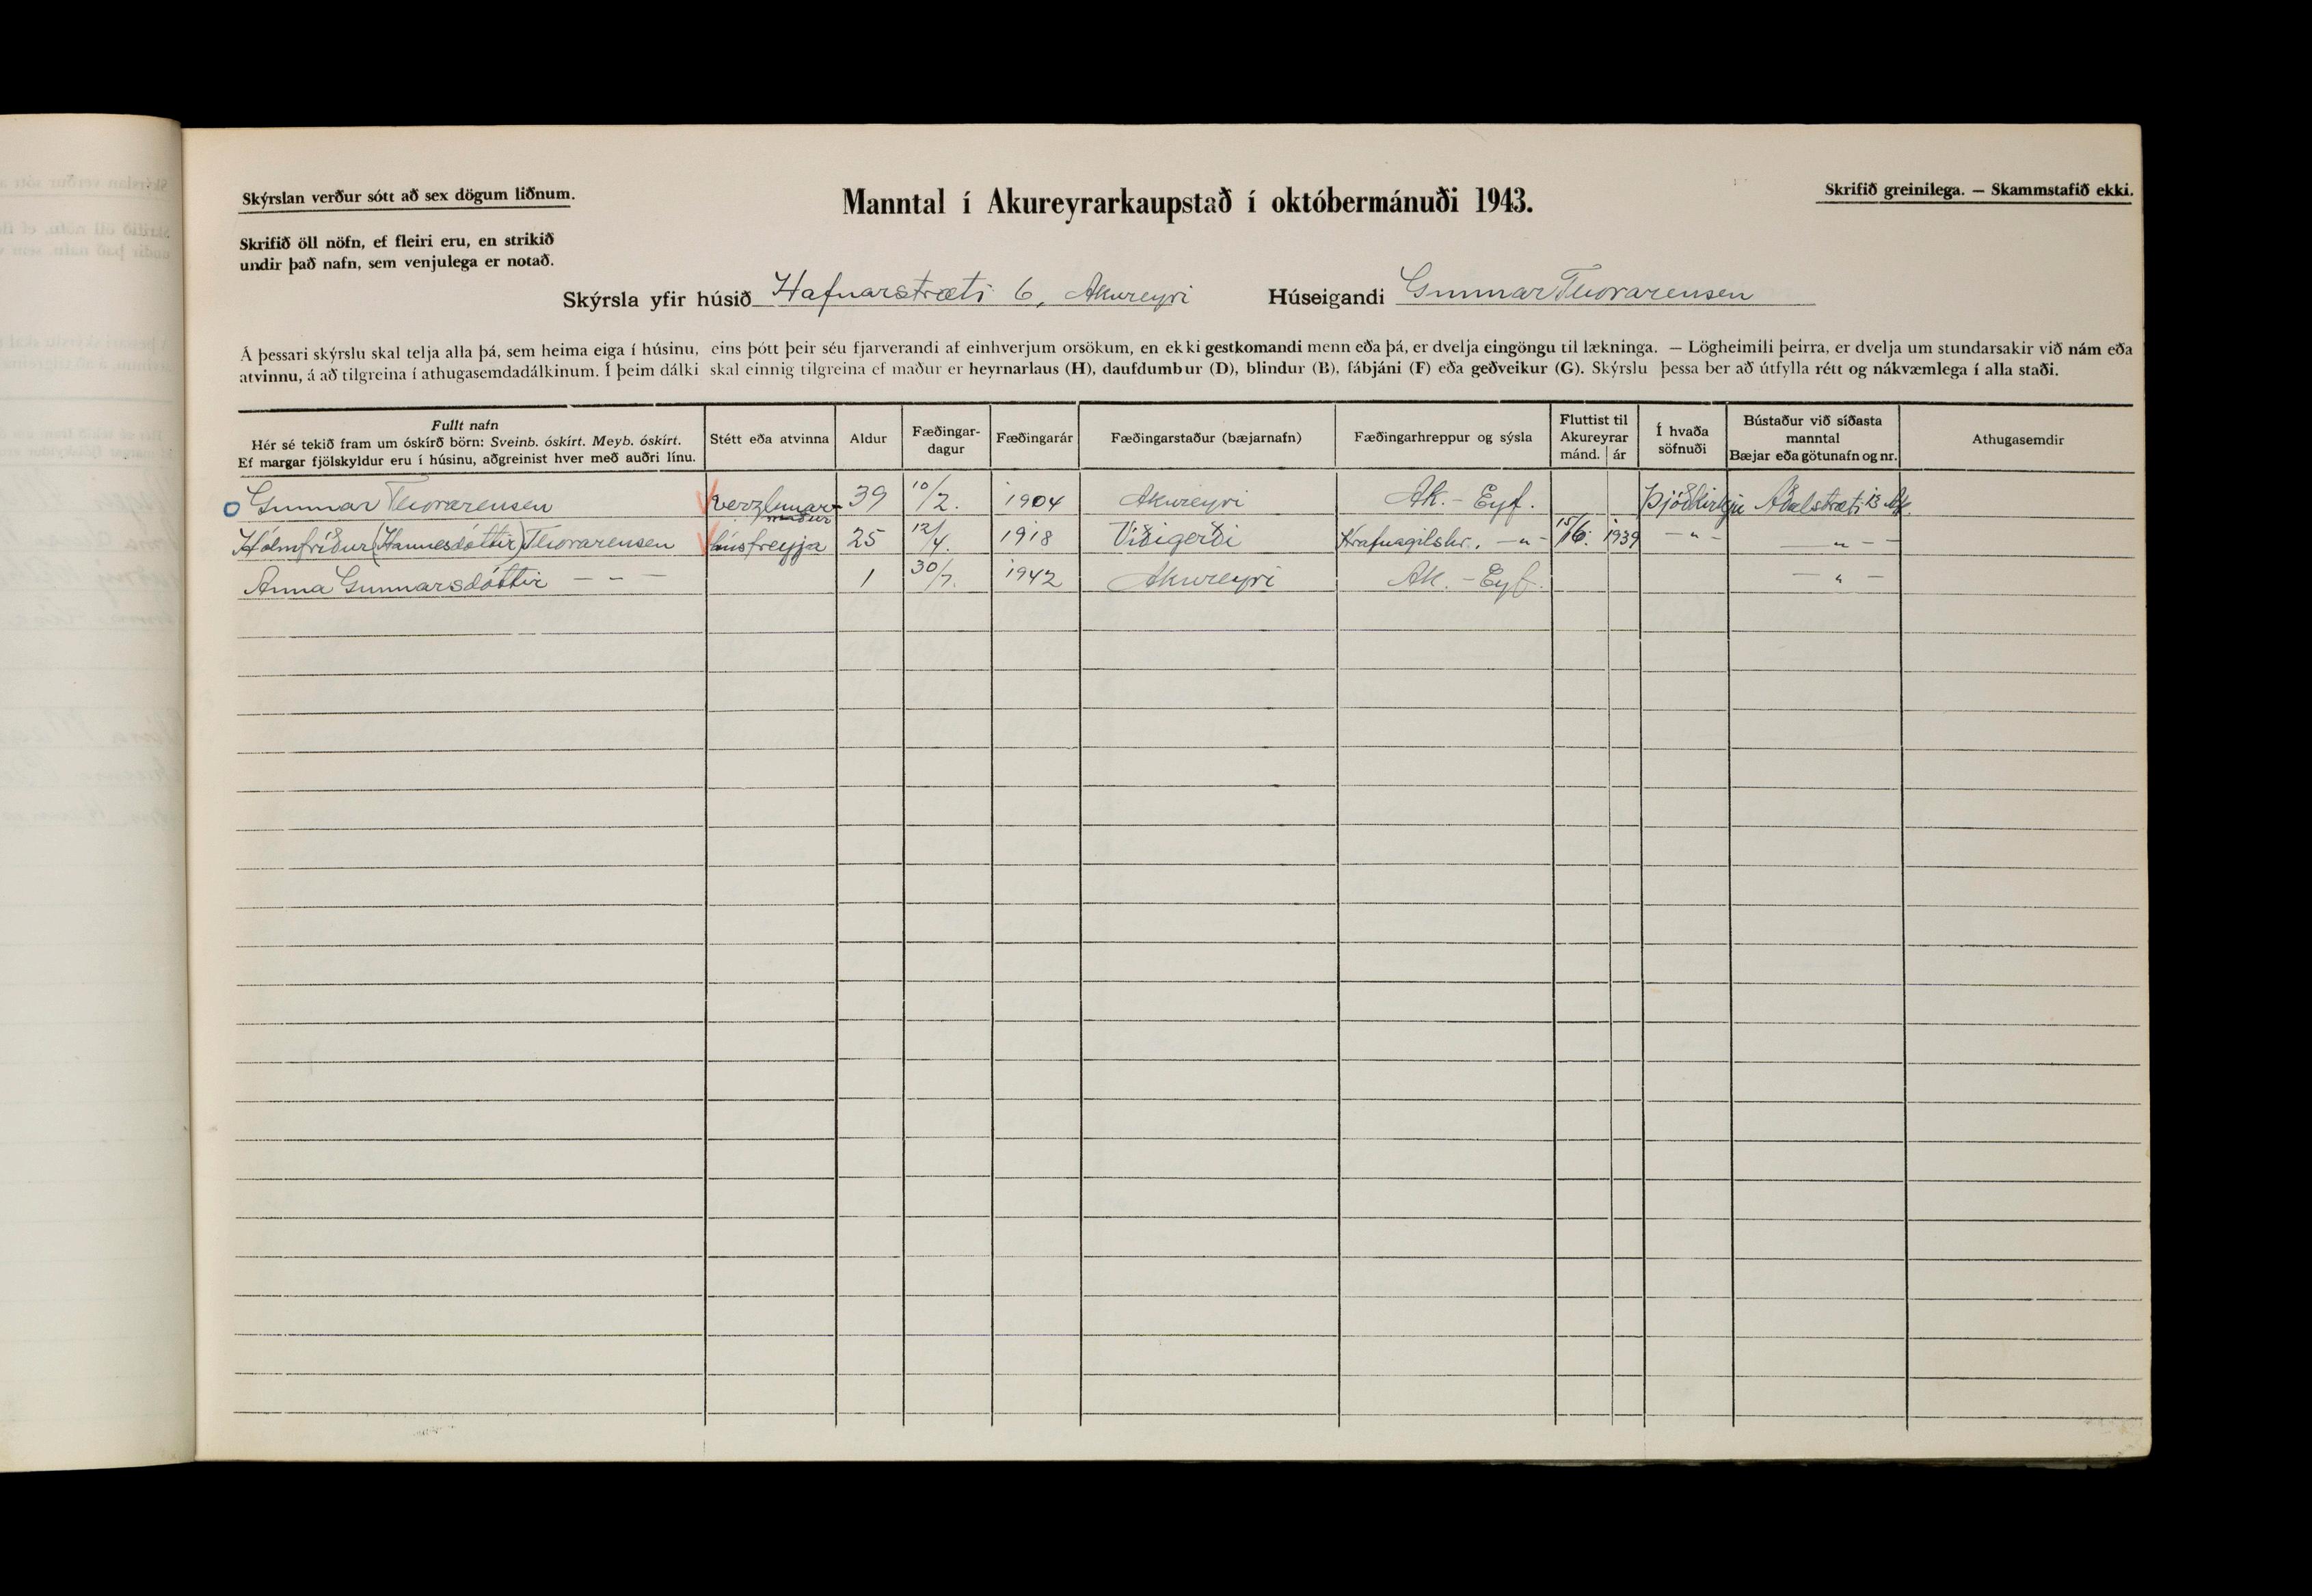 Skýrslan verður sótt að sex dögum liðnum.
Manntal í Akureyrarkaupstað í októbermánuði 1943.
Skrifið greinilega. — Skammstafið ekki.
Skrifið öll nöfn, ef fleiri eru, en strikið
undir það nafn, sem venjulega er notað.
Skýrsla yfir húsið Hafnarstræti 6, Akureyri Húseigandi Gunnar Thorarensen
Á þessari skýrslu skal telja alla þá, sem heima eiga í húsinu, eins þótt þeir séu fjarverandi af einhverjum orsökum, en ekki gestkomandi menn eða þá, er dvelja eingöngu til lækninga. — Lögheimili þeirra, er dvelja um stundarsakir við nám eða
atvinnu, á að tilgreina í athugasemdadálkinum. Í þeim dálki skal einnig tilgreina ef maður er heyrnarlaus (H), daufdumbur (D), blindur (B), fábjáni (F) eða geðveikur (G). Skýrslu þessa ber að útfylla rétt og nákvæmlega í alla staði.
Fullt nafn
Hér sé tekið fram um óskírð börn: Sveinb. óskírt. Meyb. óskírt.
Ef margar fjölskyldur eru í húsinu, aðgreinist hver með auðri línu.
Stétt eða atvinna
Aldur
Fæðingar-
dagur
Fæðingarár
Fæðingarstaður (bæjarnafn)
Fæðingarhreppur og sýsla
Fluttist til
Akureyrar
mánd. ár
Í hvaða
söfnuði
Bústaður við síðasta
manntal
Bæjar eða götunafn og nr.
Athugasemdir
Gunnar Thorarensen verzlunar- 39 10/2. 1904 Akureyri Ak. - Eyf. Þjóðkirkju Aðalstræti 13 Ak.
maður
Hólmfríður (Hannesdóttir) Thorarensen húsfreyja 25 12/4. 1918 Víðigerði Hrafnagilshr. -"- 15/6. 1939 -"- -"-
Anna Gunnarsdóttir - - - 1 30/7. 1942 Akureyri Ak. - Eyf. -"-